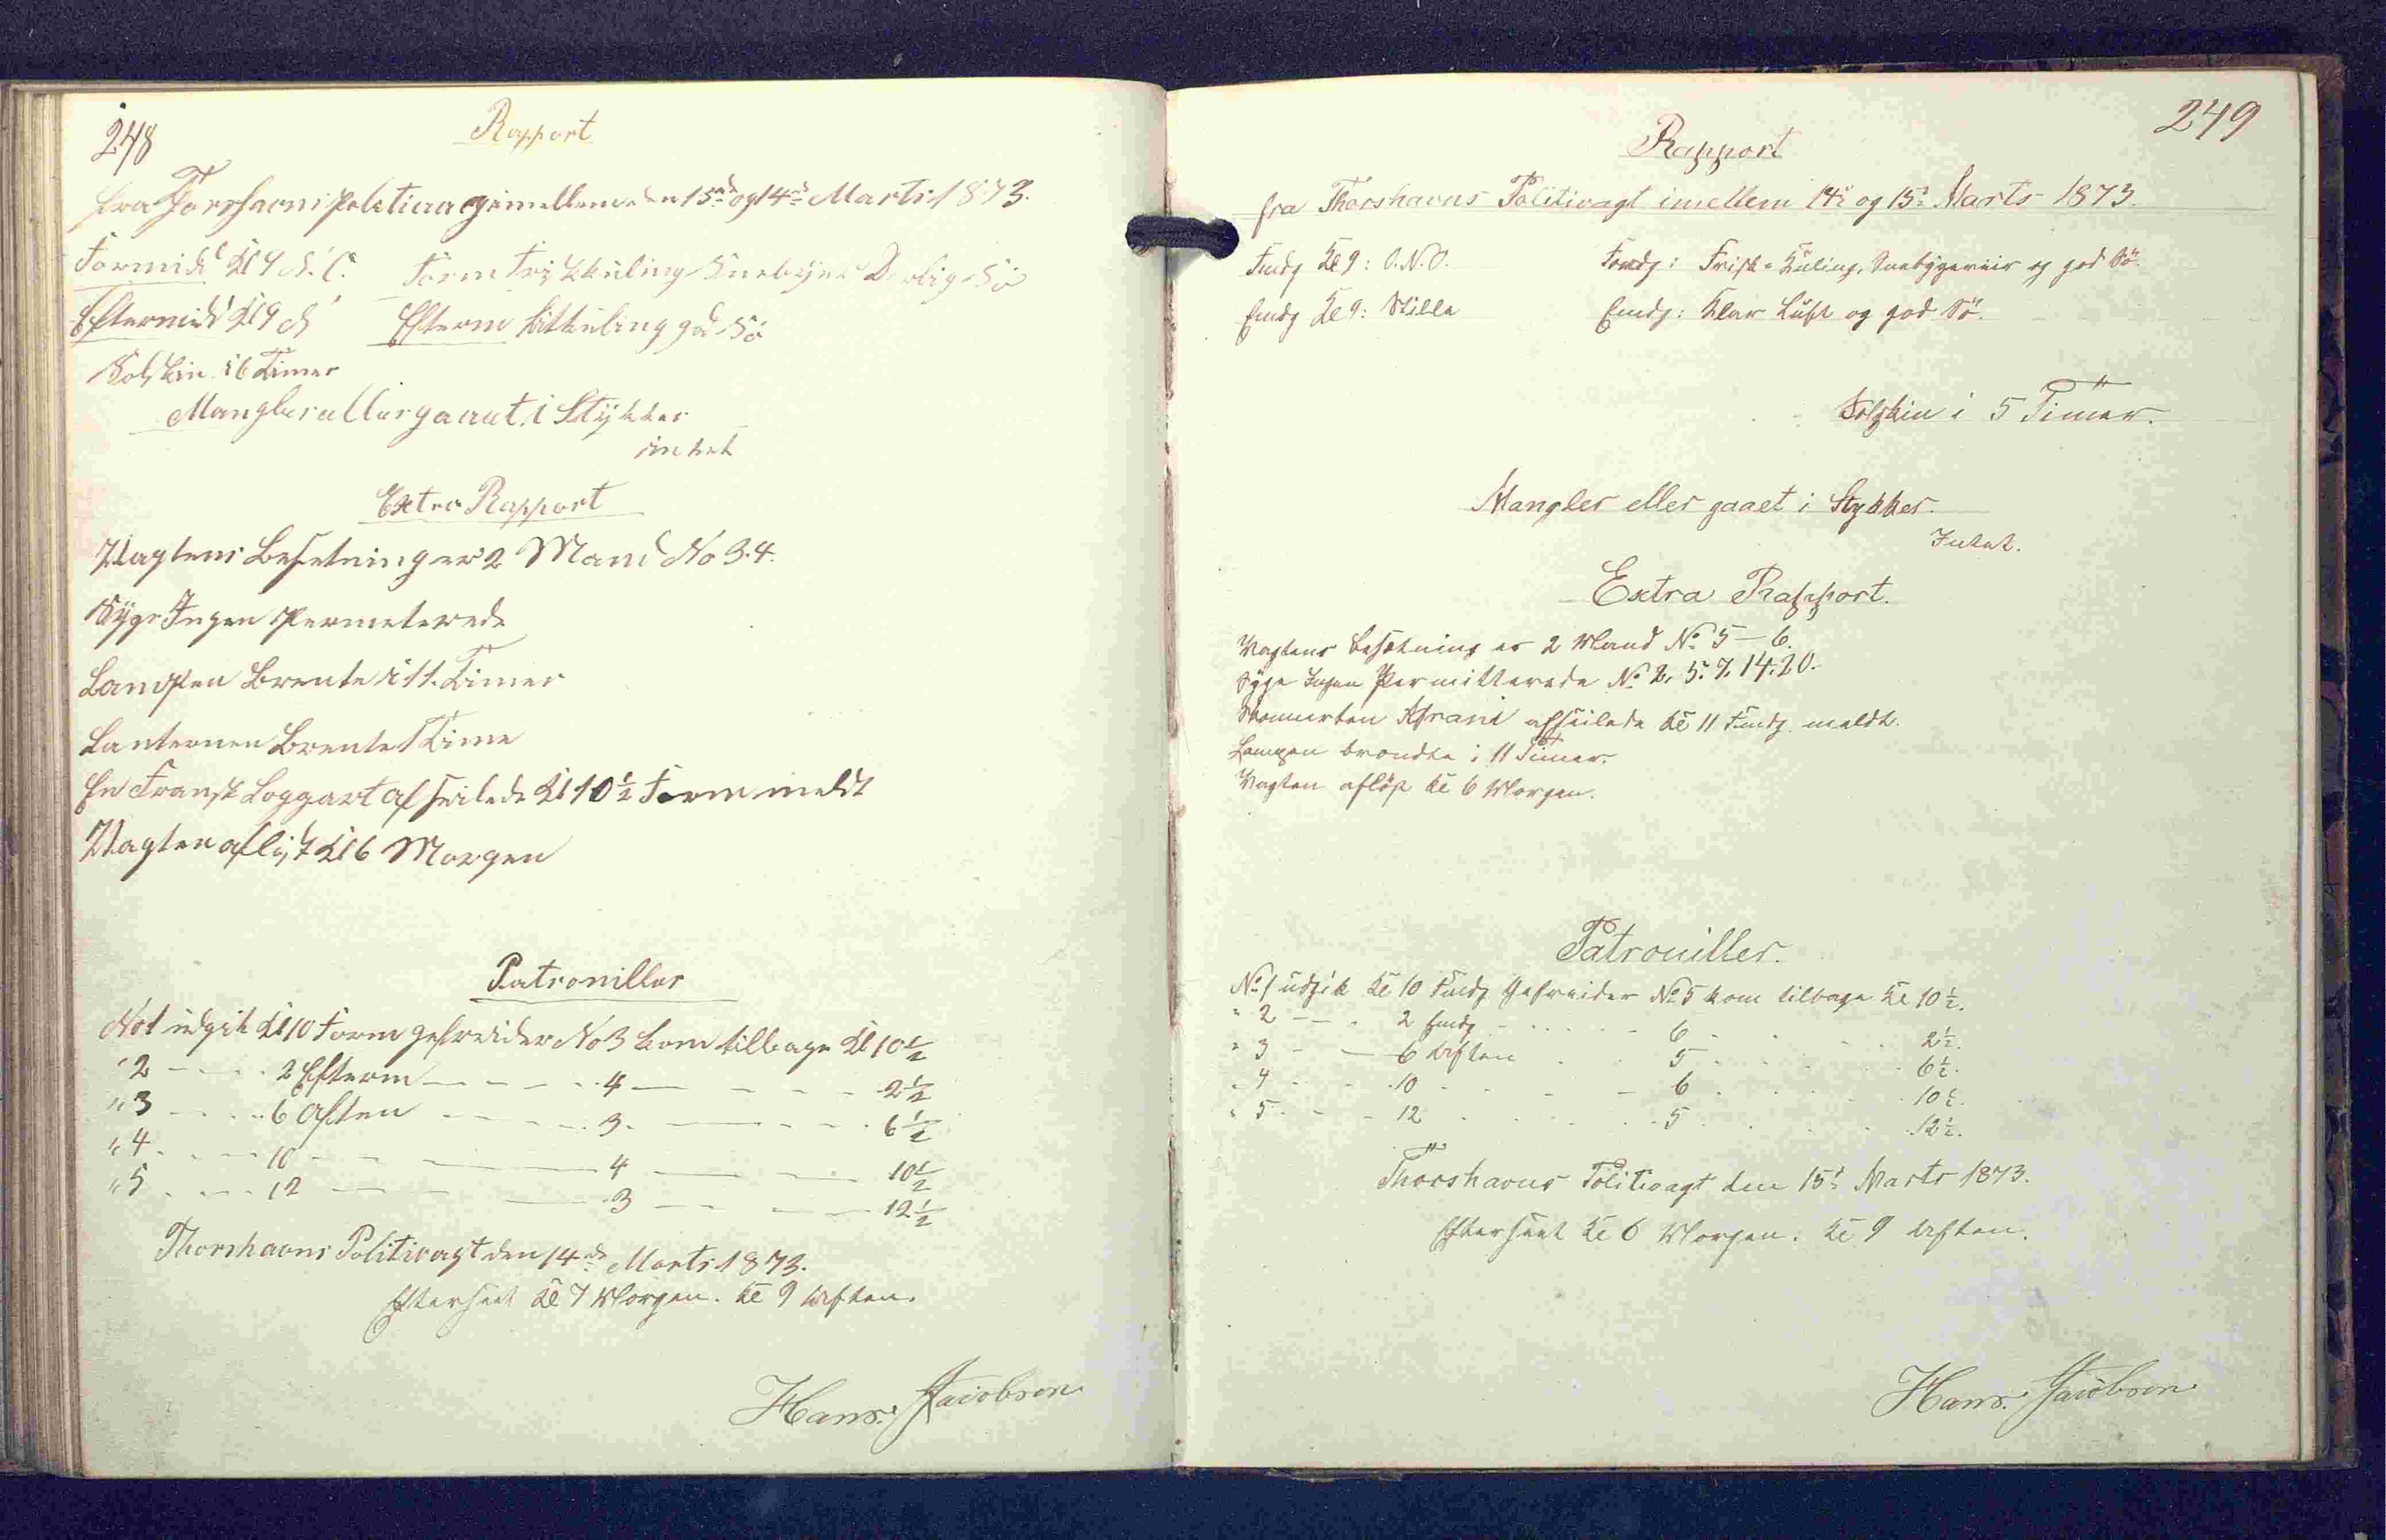 248
Rapport
fra Torshavns Politivagt imellem den 13de og 14de Marts 1873.
Formidd Kl 9 N.
Form Frisk Kuling Snebyer Rolig Sö
Eftermidd Kl 9 N
Efterm Litkuling god Sö
Solskin i 6 Timer
Mangler eller gaaet i Stÿkker
intet
Extra Rapport
Vagtens Besetning er 2 Mand No 3.4.
Sÿge Ingen Permeterede
Lampen Brente i 11 Timer
Lanternen Brente 1 Time
En Fransk Loggart afseilede Kl 10 1/2 Form meldt
Vagten afløst Kl 6 Morgen
Patroniller
No 1 udgik Kl 10 Form gefreider No 3 kom tilbage Kl 10 1/2
" 2 - - - 2 Efterm - - - 4 - - - 2 1/2
" 3 - - - 6 Aften - - - 3 - - - 6 1/2
" 4 - - - 10 - - - 4 - - - 10 1/2
" 5 - - - 12 - - - 3 - - - 12 1/2
Thorshavns Politivagt den 14de Marts 1873.
Efterseet Kl 7 Morgen. Kl 9 Aften.
Hans Jacobsen
249
Rapport
fra Thorshavns Politivagt imellem 14de og 15de Marts 1873.
Fmdg Kl 9: O.N.O.
Fmdg: Frisk-Kuling, Snebygeveir og god Sö.
Emdg Kl 9: Stille
Emdg: Klar Luft og god Sö.
Solskin i 5 Timer.
Mangler eller gaaet i Stykker.
Intet.
Extra Rapport.
Vagtens Besætning er 2 Mand No 5-6.
Syge Ingen Permitterede No 2. 5. 7. 14. 20.
Skonnerten afseilede Kl 11 Fmdg. meldt.
Lampen brændte i 11 Timer.
Vagten aflöst Kl 6 Morgen.
Patrouiller.
No 1 udgik Kl 10 Fmdg Gefreider No 5 kom tilbage Kl 10 1/2.
" 2 - - - 2 Emdg - - - 6 - - - 2 1/2.
" 3 - - - 6 Aften - - - 5 - - - 6 1/2.
" 4 - - - 10 - - - 6 - - - 10 1/2.
" 5 - - - 12 - - - 5 - - - 12 1/2.
Thorshavns Politivagt den 15de Marts 1873.
Efterseet Kl 6 Morgen. Kl 9 Aften.
Hans Jacobsen